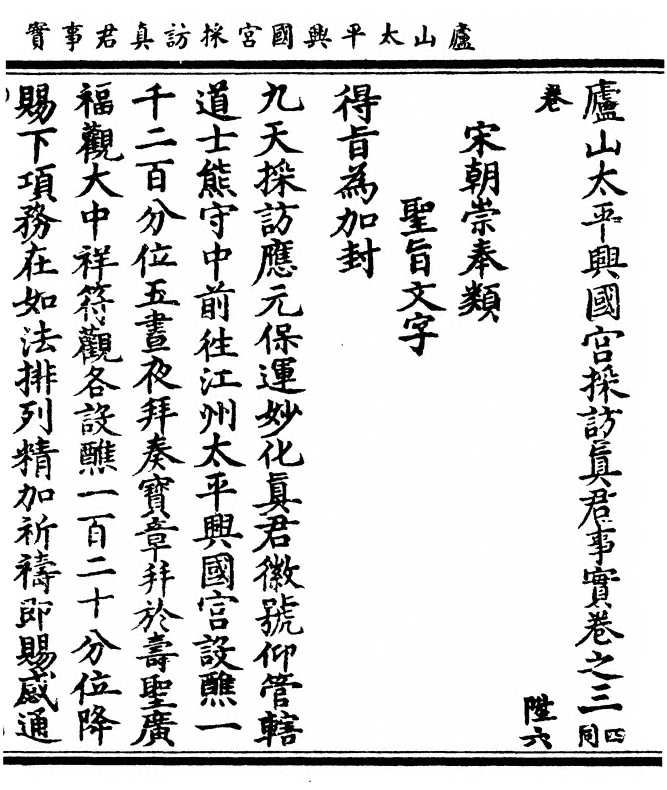 廬山太平興國宮採訪真君事實
廬山太平興國宮採訪眞君事實卷之三 四同
卷 陞六
宋朝崇奉類
聖旨文字
得旨為加封
九天採訪應元保運妙化眞君徽號仰管轄
道士熊守中前往江州太平興國宮設醮一
千二百分位五晝夜拜奏寶章拜於壽聖廣
福觀大中祥符觀各設醮一百二十分位降
賜下項務在如法排列精加祈禱即賜感通